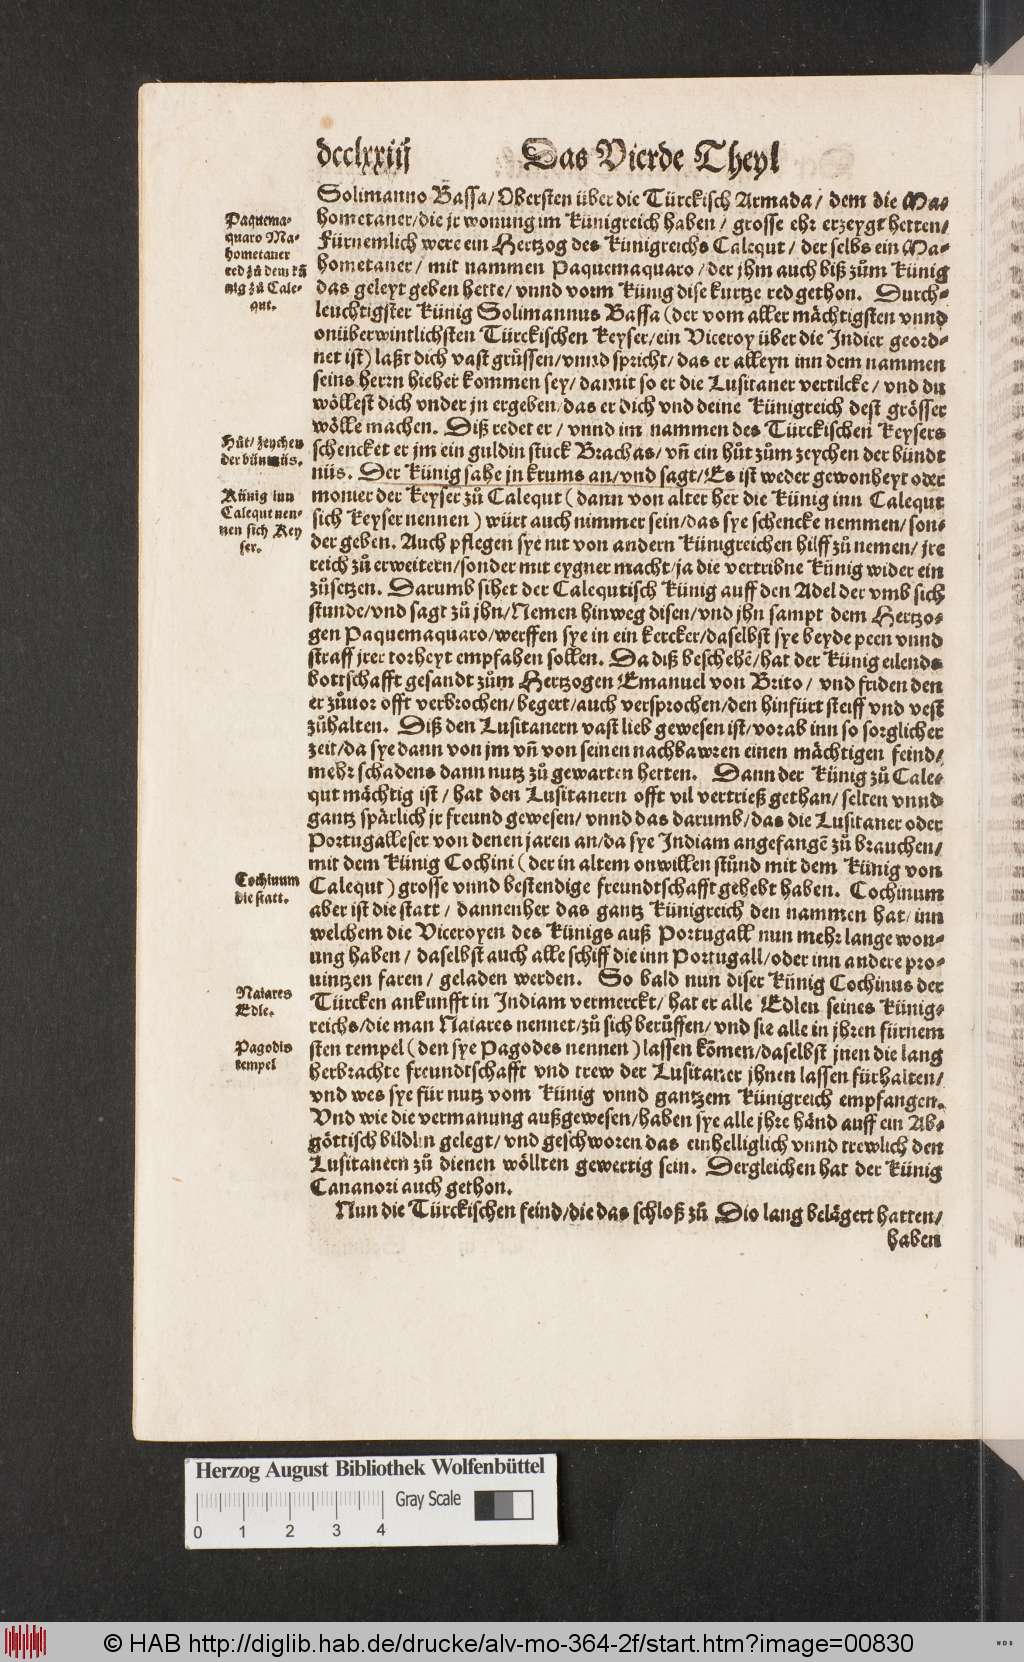 dcclxxiiij Das Vierde Theyl
Solimanno Bassa/ Obersten über die Türckisch Armada/ dem die Ma-
hometaner/die jr wonung im künigreich haben/ grosse ehr erzeygt hetten/
Fürnemlich were ein Hertzog des künigreichs Calequt/ der selbs ein Ma-
hometaner/ mit nammen Paquemaquaro/der jhm auch biß zům künig
das geleyt geben hette/ vnnd vorm künig dise kurtze red gethon. Durch-
leuchtigster künig Solimannus Bassa (der vom aller mächtigsten vnnd
onüberwintlichsten Türckischen keyser/ein Viceroy über die Indier geord-
net ist) laßt dich vast grüssen/vnnd spricht/das er alleyn inn dem nammen
seins herrn hieher kommen sey/ damit so er die Lusitaner vertilcke/ vnd du
wöllest dich vnder jn ergeben/das er dich vnd deine künigreich dest grösser
wölle machen. Diß redet er/ vnnd im nammen des Türckischen keysers
schencket er jm ein guldin stuck Brachas/ vñ ein hůt zům zeychen der bündt
nüs. Der künig sahe jn krums an/vnd sagt/Es ist weder gewonheyt oder
monier der keyser zů Calequt (dann von alter her die künig inn Calequt
sich keyser nennen) würt auch nimmer sein/das sye schencke nemmen/son-
der geben. Auch pflegen sye nit von andern künigreichen hilff zů nemen/ jre
reich zů erweitern/sonder mit eygner macht/ja die vertribne künig wider ein
zůsetzen. Darumb sihet der Calequtisch künig auff den Adel der vmb sich
stunde/vnd sagt zů jhn/Nemen hinweg disen/vnd jhn sampt dem Hertzo-
gen Paquemaquaro/werffen sye in ein kercker/daselbst sye beyde peen vnnd
straff jrer torheyt empfahen sollen. Da diß beschehẽ/hat der künig eilends
bottschafft gesandt zům Hertzogen Emanuel von Brito/ vnd friden den
er zůuor offt verbrochen/begert/auch versprochen/den hinfürt steiff vnd vest
zůhalten. Diß den Lusitanern vast lieb gewesen ist/vorab inn so sorglicher
zeit/da sye dann von jm vñ von seinen nachbawren einen mächtigen feind/
mehr schadens dann nutz zů gewarten hetten. Dann der künig zů Cale-
qut mächtig ist/ hat den Lusitanern offt vil vertrieß gethan/ selten vnnd
gantz spärlich jr freund gewesen/ vnnd das darumb/das die Lusitaner oder
Portugalleser von denen jaren an/da sye Indiam angefangẽ zů brauchen/
mit dem künig Cochini (der in altem onwillen stůnd mit dem künig von
Calequt) grosse vnnd bestendige freundtschafft gehebt haben. Cochinum
aber ist die statt/ dannenher das gantz künigreich den nammen hat/ inn
welchem die Viceroyen des künigs auß Portugall nun mehr lange won-
ung haben/ daselbst auch alle schiff die inn Portugall/oder inn andere pro-
uintzen faren/ geladen werden. So bald nun diser künig Cochinus der
Türcken ankunfft in Indiam vermerckt/ hat er alle Edlen seines künig-
reichs/die man Naiares nennet/zů sich berůffen/ vnd sie alle in jhren fürnem
sten tempel (den sye Pagodes nennen) lassen kõmen/daselbst jnen die lang
herbrachte freundtschafft vnd trew der Lusitaner jhnen lassen fürhalten/
vnd wes sye für nutz vom künig vnnd gantzem künigreich empfangen.
Vnd wie die vermanung außgewesen/haben sye alle jhre händ auff ein Ab-
göttisch bildin gelegt/ vnd geschworen das einhelliglich vnnd trewlich den
Lusitanern zů dienen wöllten gewertig sein. Dergleichen hat der künig
Cananori auch gethon.
Nun die Türckischen feind/die das schloß zů Dio lang belägert hatten/
haben
Paquema-
quaro Ma-
hometaner
red zů dem kü
nig zů Cale-
qut.
Hůt/ zeychen
der büntnüs.
Künig inn
Calequt nen-
nen sich Key
ser.
Cochinum
die statt.
Naiares
Edle.
Pagodis
tempel
Herzog August Bibliothek Wolfenbüttel
0 1 2 3 4 Gray Scale
© HAB http://diglib.hab.de/drucke/alv-mo-364-2f/start.htm?image=00830